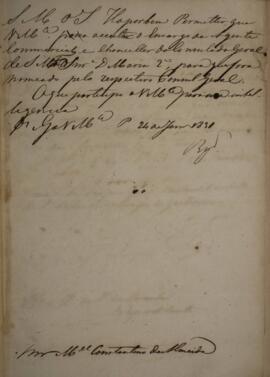 S. M. O I. Ha por bem Permitter que
V Mce possa acceitar o encargo de Agente
Commercial, e Chanceller do Consulado Geral
de S. M. a Snra D. Maria 2ª, para que fora
nomeado pelo respectivo Consul Geral.
O que participo a V Mce para sua intel
ligencia
Ds Ge a V Mce P. 24 de 1831
Snr Mel Constantino de Almeida